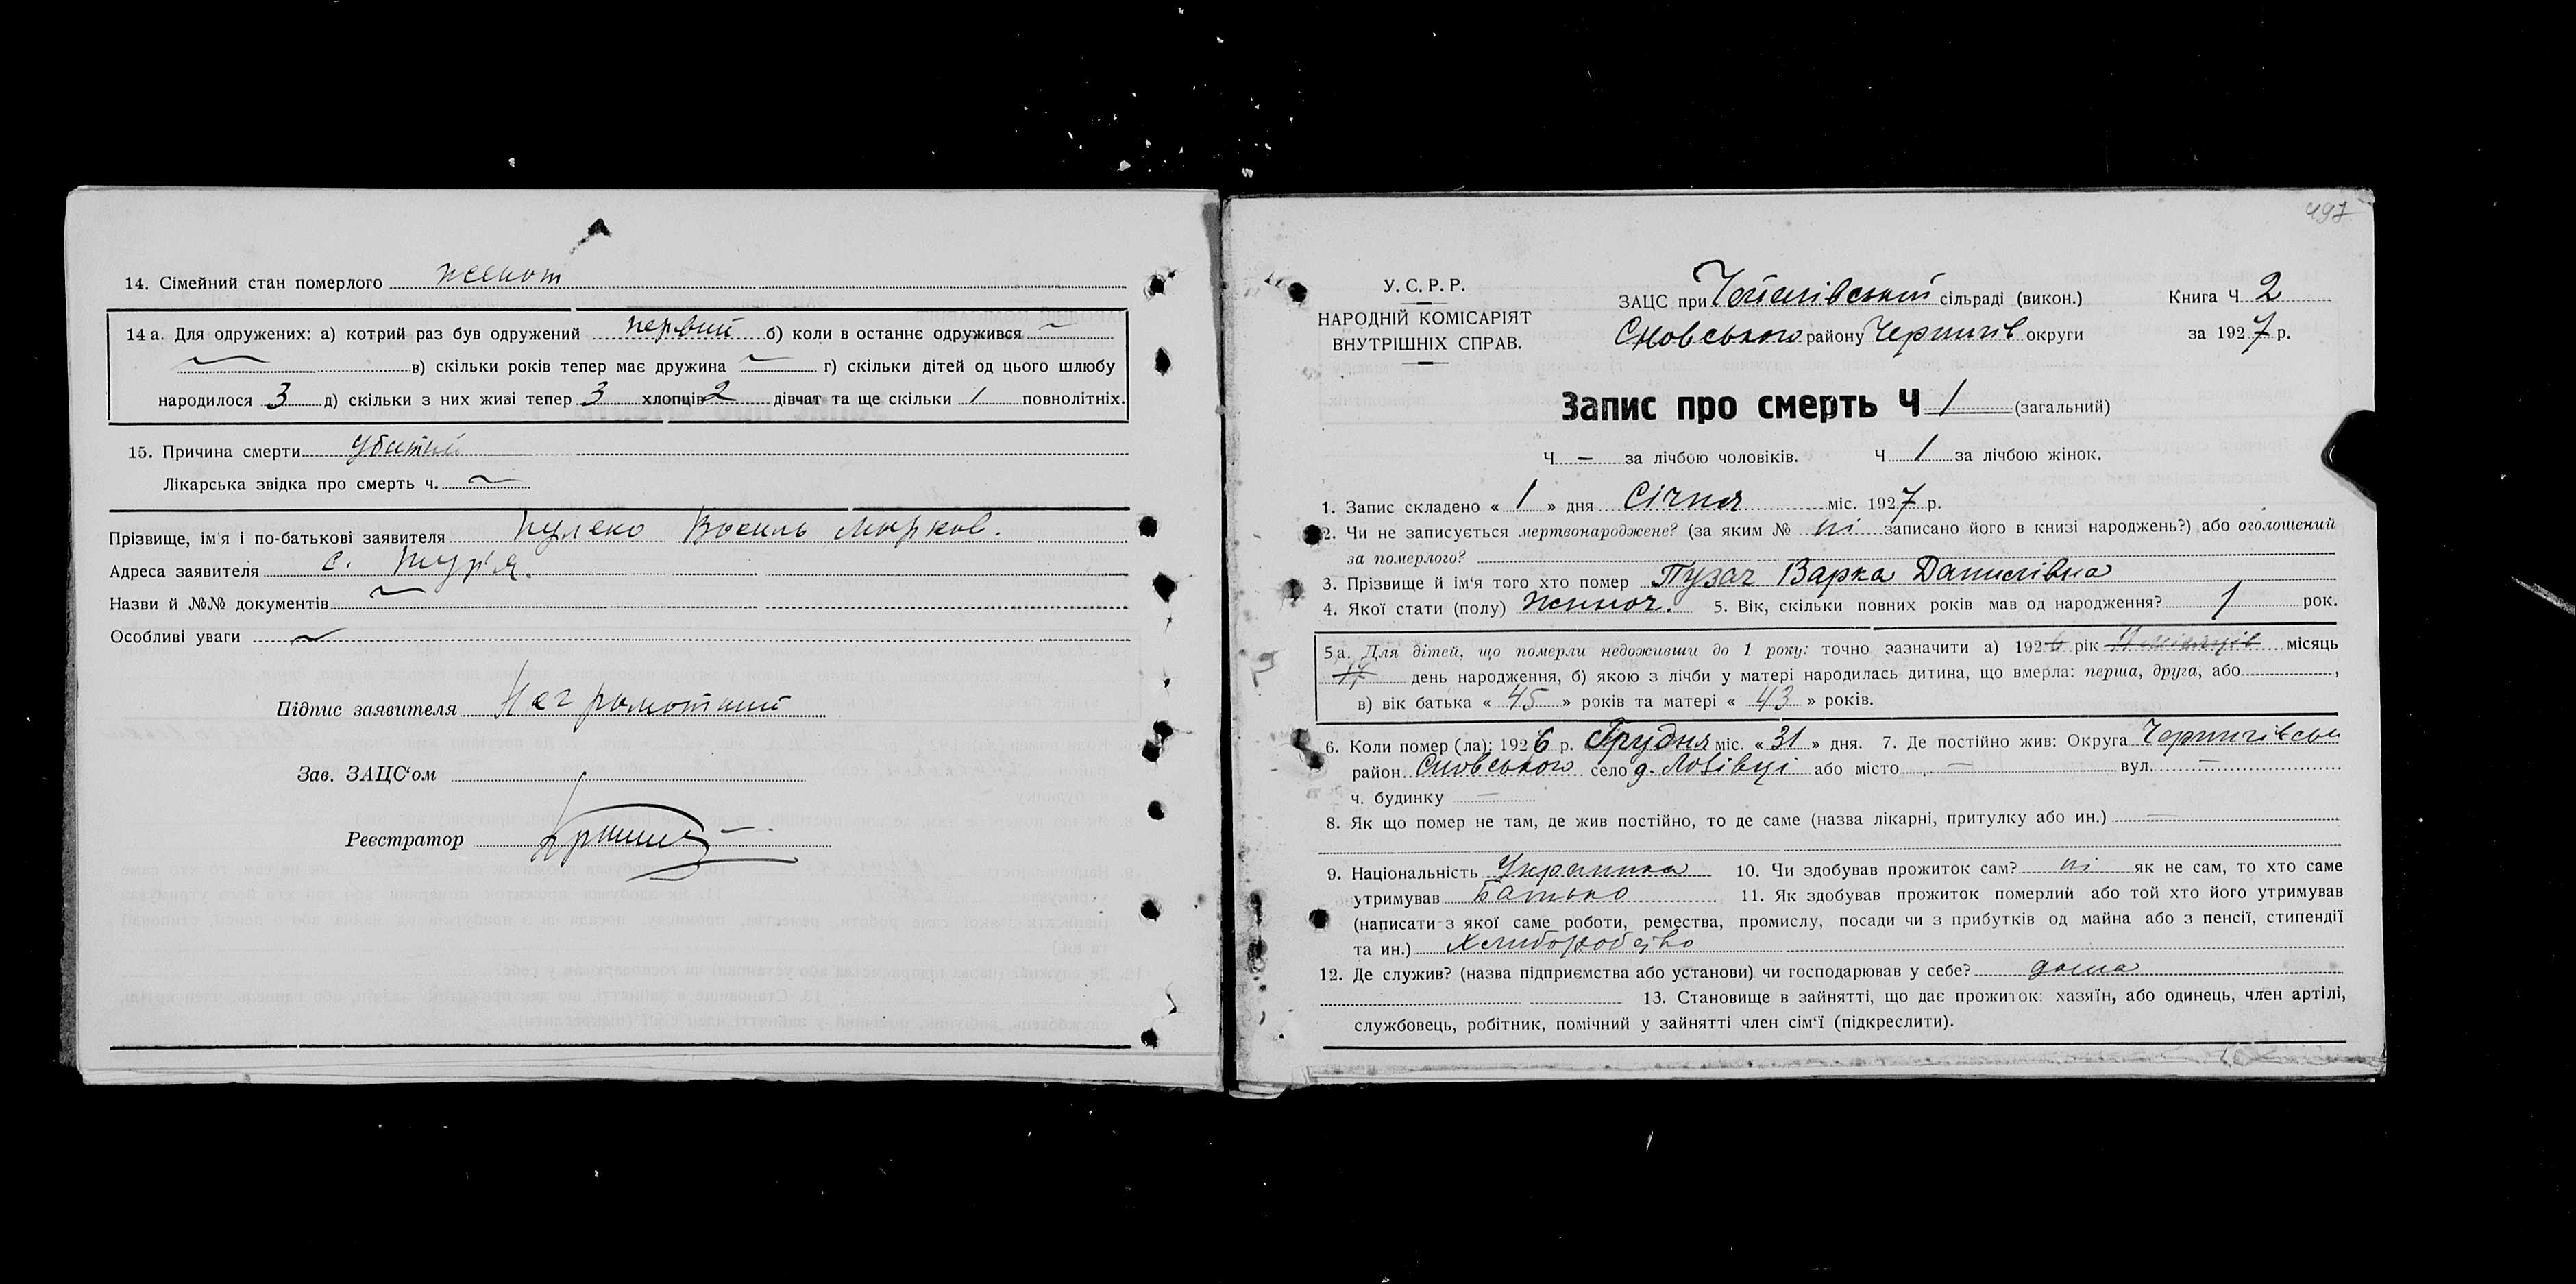 14. Сімейний стан померлого женот
14 а. Для одружених: а) котрий раз був одружений первий б) коли в останнє одружився ~
~ в) скільки років тепер має дружина ~ г) скільки дітей од цього шлюбу
народилося 3 д) скільки з них живі тепер 3 хлопців 2 дівчат та ще скільки 1 повнолітніх.
15. Причина смерти убитий
Лікарська звідка про смерть ч. ~
Прізвище, ім'я і по-батькові заявителя Василь Марков.
Адреса заявителя с. Тур'я.
Назви й №№ документів ~
Особливі уваги ~
Підпис заявителя Неграмотний
Зав. ЗАЦС'ом
Реєстратор
497
У. С. Р. Р.
НАРОДНІЙ КОМІСАРІЯТ
ВНУТРІШНІХ СПРАВ.
ЗАЦС при сільраді (викон.)
Сновського району Чернигів округи
Книга Ч 2
за 1927 р.
Запис про смерть Ч 1 (загальний)
Ч – за лічбою чоловіків. Ч 1 за лічбою жінок.
1. Запис складено « 1 » дня Січня міс. 1927 р.
2. Чи не записується мертвонароджене? (за яким № ні записано його в книзі народжень?) або оголошений
за померлого?
3. Прізвище й ім'я того хто помер Пузач Варка Данилівна
4. Якої стати (полу) жиноч. 5. Вік, скільки повних років мав од народження? 1 рок.
5 а. Для дітей, що померли недоживши до 1 року: точно зазначити а) 1926 рік місяць
17 день народження, б) якою з лічби у матері народилась дитина, що вмерла: перша, друга, або ,
в) вік батька « 45 » років та матері « 43 » років.
6. Коли помер (ла): 1926 р. Грудня міс. « 31 » дня. 7. Де постійно жив: Округа Чернигівськ
район Сновського село д. Лозівці або місто – вул. –
ч. будинку –
8. Як що помер не там, де жив постійно, то де саме (назва лікарні, притулку або ин.) –
9. Національність Украинка 10. Чи здобував прожиток сам? ні як не сам, то хто саме
утримував Батько 11. Як здобував прожиток померлий або той хто його утримував
(написати з якої саме роботи, ремества, промислу, посади чи з прибутків од майна або з пенсії, стипендії
та ин.) Хлиборобство
12. Де служив? (назва підприємства або установи) чи господарював у себе? дома
13. Становище в зайнятті, що дає прожиток: хазяїн, або одинець, член артілі,
службовець, робітник, помічний у зайнятті член сім'ї (підкреслити).